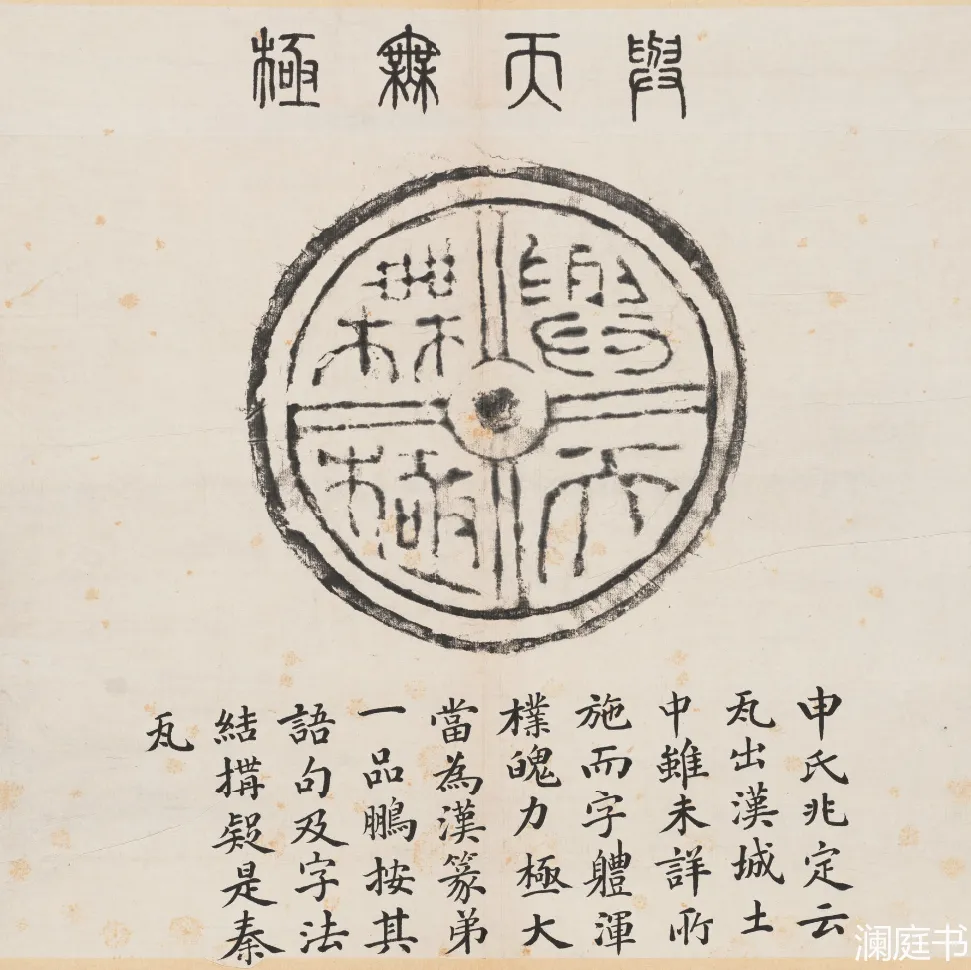 與天無極
與天
無極
申氏兆定云
瓦出漢城土
中雖未詳所
施而字體渾
樸魄力極大
當為漢篆弟
一品鵬按其
語句及字法
結搆疑是秦
瓦
澜庭书